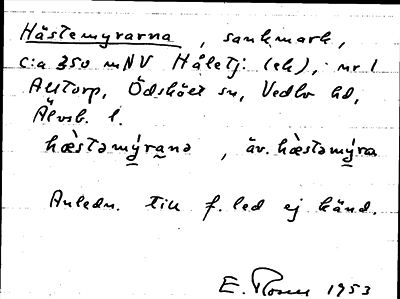 Hästemyrarna, sankmark,
c:a 350 m NV Håletj. (ek), nr 1
Alltorp, Ödskölt sn, Vedbo hd,
Älvsb. l.
hæ̀stəmýrana, äv. hæ̀stəmýra
Anledn. till f. led ej känd.
E. Rosell 1953